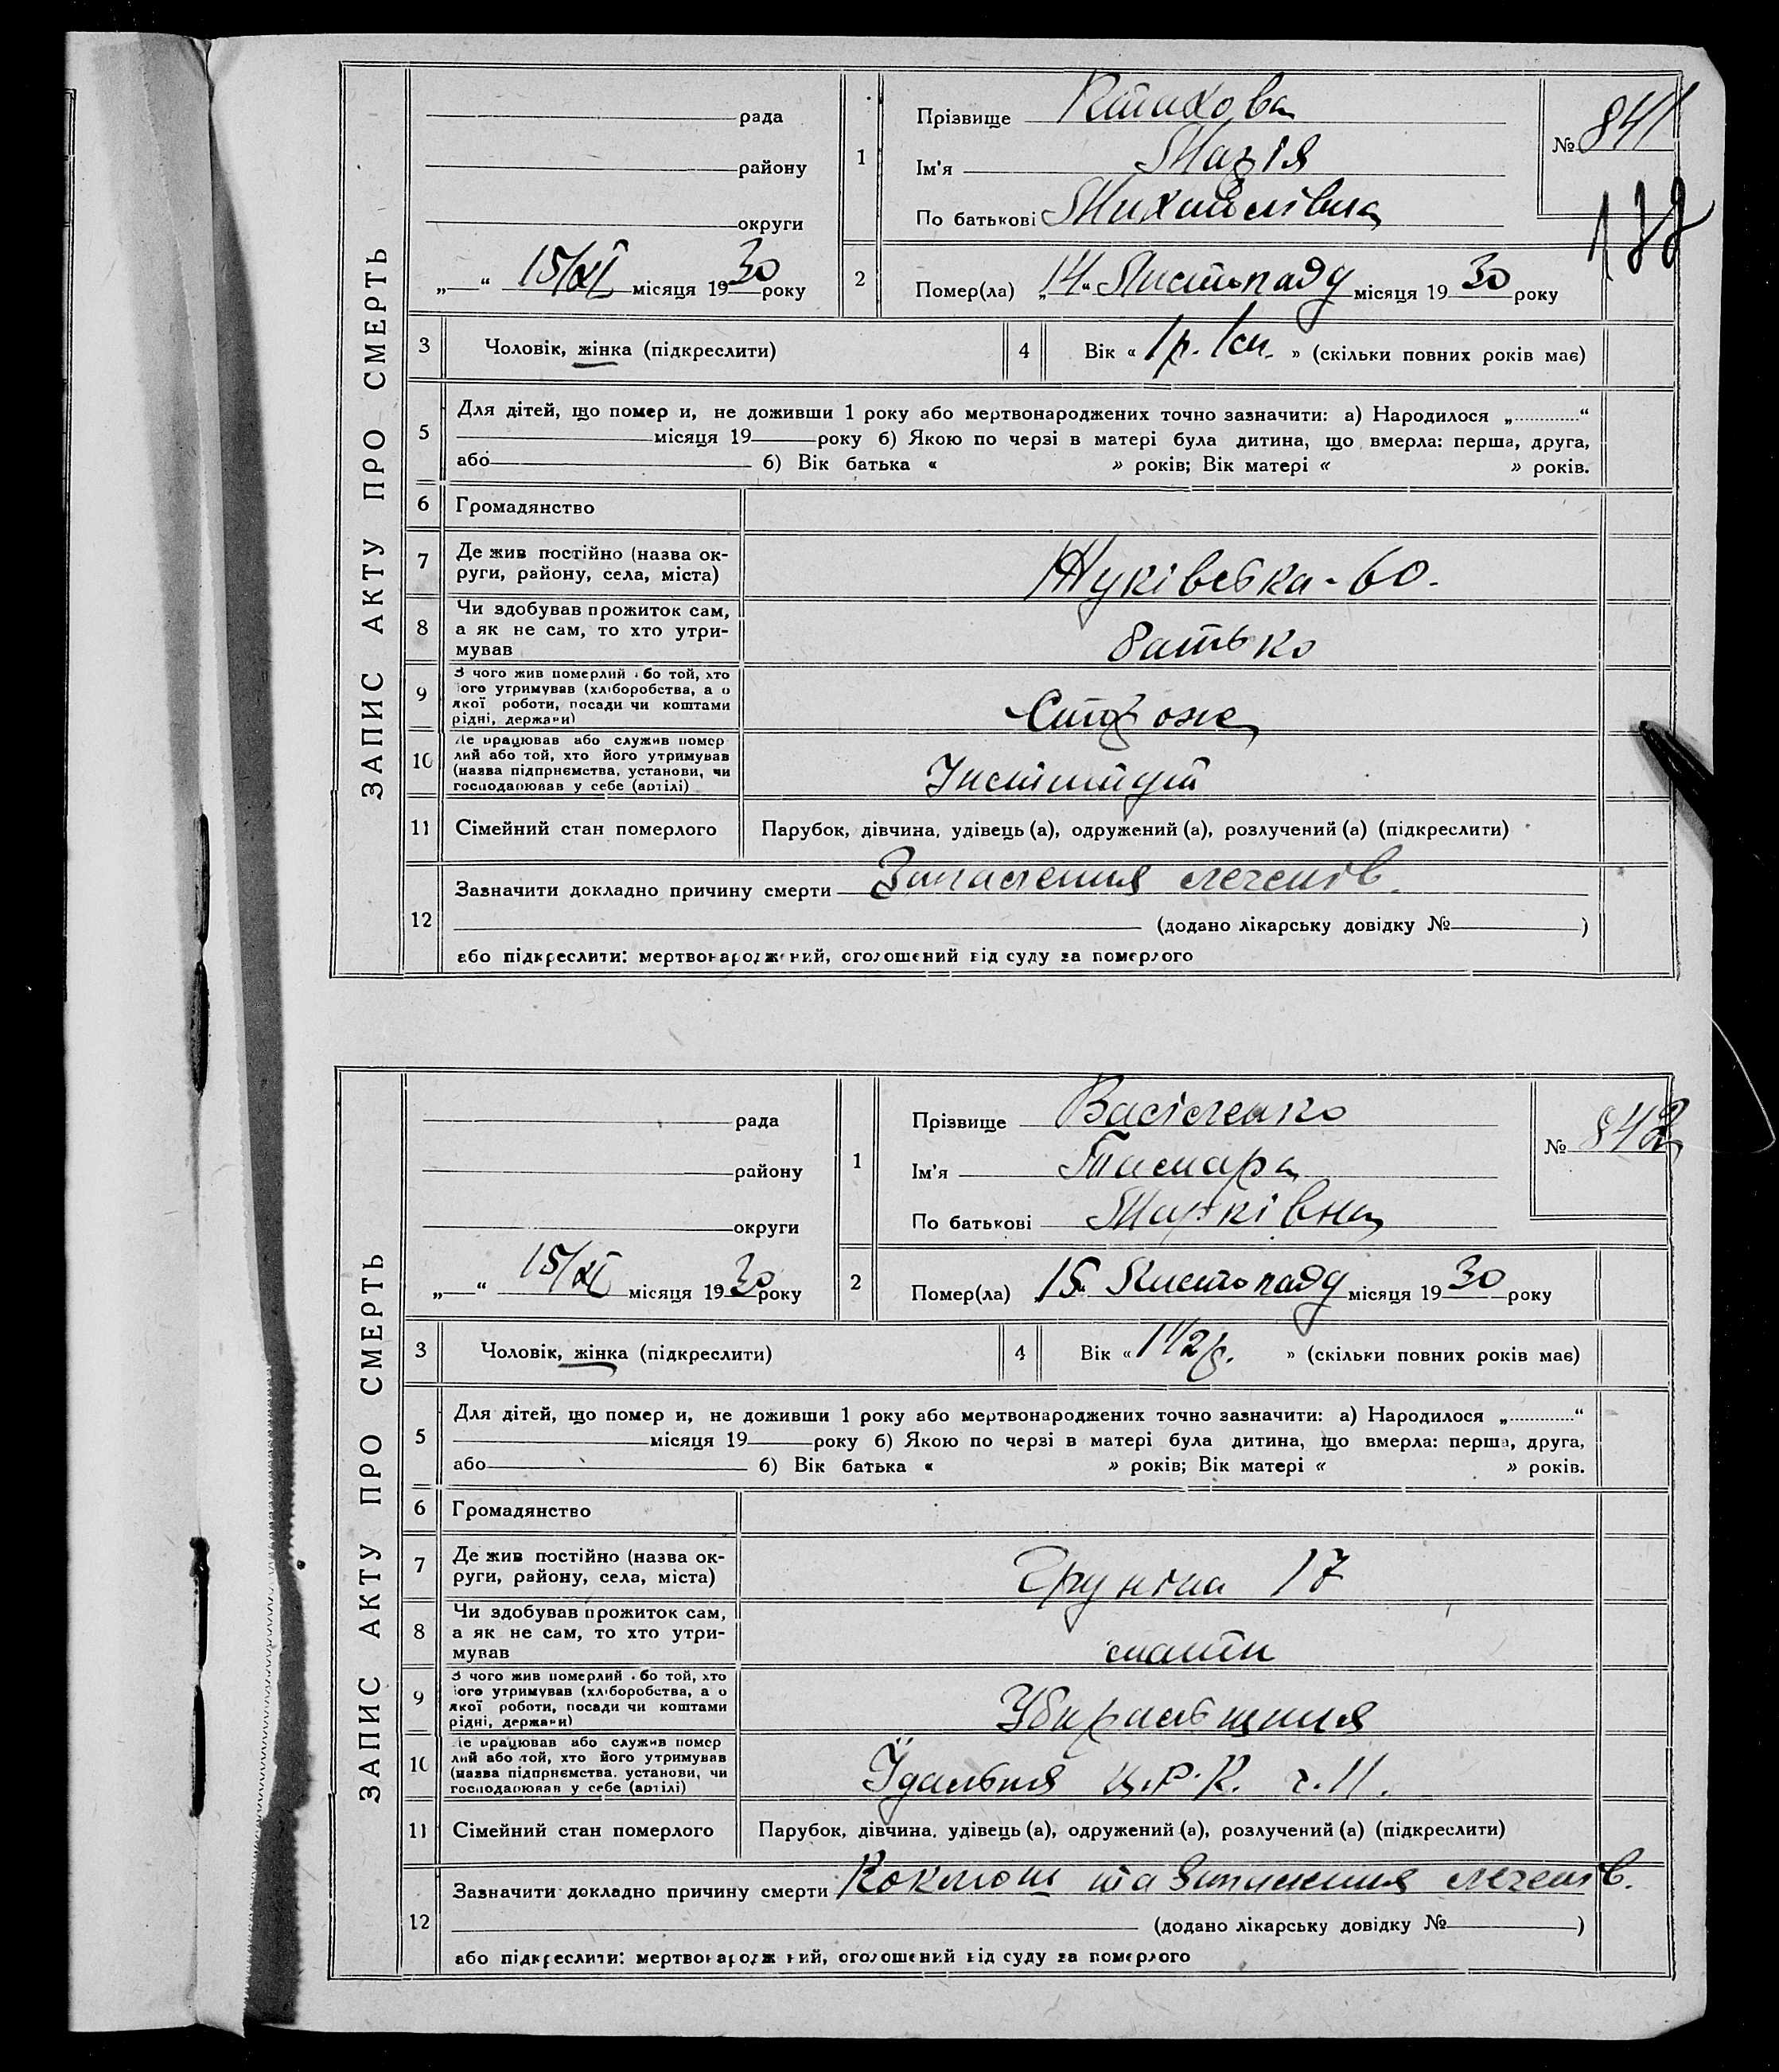 ЗАПИС АКТУ ПРО СМЕРТЬ
рада
району
округи
„ “ 15/XI місяця 1930 року
1
Прізвище Птахова
Ім'я Марія
По батькові Михайлівна
№ 841
138
2
Помер(ла) „14“ Листопаду місяця 1930 року
3 Чоловік, жінка (підкреслити)
4 Вік « 1р. 1м. » (скільки повних років має)
5 Для дітей, що помер и, не доживши 1 року або мертвонароджених точно зазначити: а) Народилося „ “
місяця 19 року б) Якою по черзі в матері була дитина, що вмерла: перша, друга,
або б) Вік батька « » років; Вік матері « » років.
6 Громадянство
7 Де жив постійно (назва ок-
руги, району, села, міста)
Жуківська - 60.
8 Чи здобував прожиток сам,
а як не сам, то хто утри-
мував
батько
9 З чого жив померлий або той, хто
його утримував (хліборобства, а о
якої роботи, посади чи коштами
рідні, держави)
Сторож
10 Де працював або служив помер
лий або той, хто його утримував
(назва підприємства, установи, чи
господарював у себе (артілі)
Інститут
11 Сімейний стан померлого
Парубок, дівчина, удівець (а), одружений (а), розлучений (а) (підкреслити)
12 Зазначити докладно причину смерти Запалення легенів.
(додано лікарську довідку № )
або підкреслити: мертвонароджений, оголошений від суду за померлого
ЗАПИС АКТУ ПРО СМЕРТЬ
рада
району
округи
„ “ 15/XI місяця 1930 року
1
Прізвище Васіленко
Ім'я Тамара
По батькові Марківна
№ 842
2
Помер(ла) 15. Листопаду місяця 1930 року
3 Чоловік, жінка (підкреслити)
4 Вік « 1 1/2 р. » (скільки повних років має)
5 Для дітей, що помер и, не доживши 1 року або мертвонароджених точно зазначити: а) Народилося „ “
місяця 19 року б) Якою по черзі в матері була дитина, що вмерла: перша, друга,
або б) Вік батька « » років; Вік матері « » років.
6 Громадянство
7 Де жив постійно (назва ок-
руги, району, села, міста)
17
8 Чи здобував прожиток сам,
а як не сам, то хто утри-
мував
мати
9 З чого жив померлий або той, хто
його утримував (хліборобства, а о
якої роботи, посади чи коштами
рідні, держави)
Убиральщиця
10 Де працював або служив помер
лий або той, хто його утримував
(назва підприємства, установи, чи
господарював у себе (артілі)
Їдальня Ц.Р.К. ч. 11.
11 Сімейний стан померлого
Парубок, дівчина, удівець (а), одружений (а), розлучений (а) (підкреслити)
12 Зазначити докладно причину смерти Коклюш та запалення легенів.
(додано лікарську довідку № )
або підкреслити: мертвонароджений, оголошений від суду за померлого